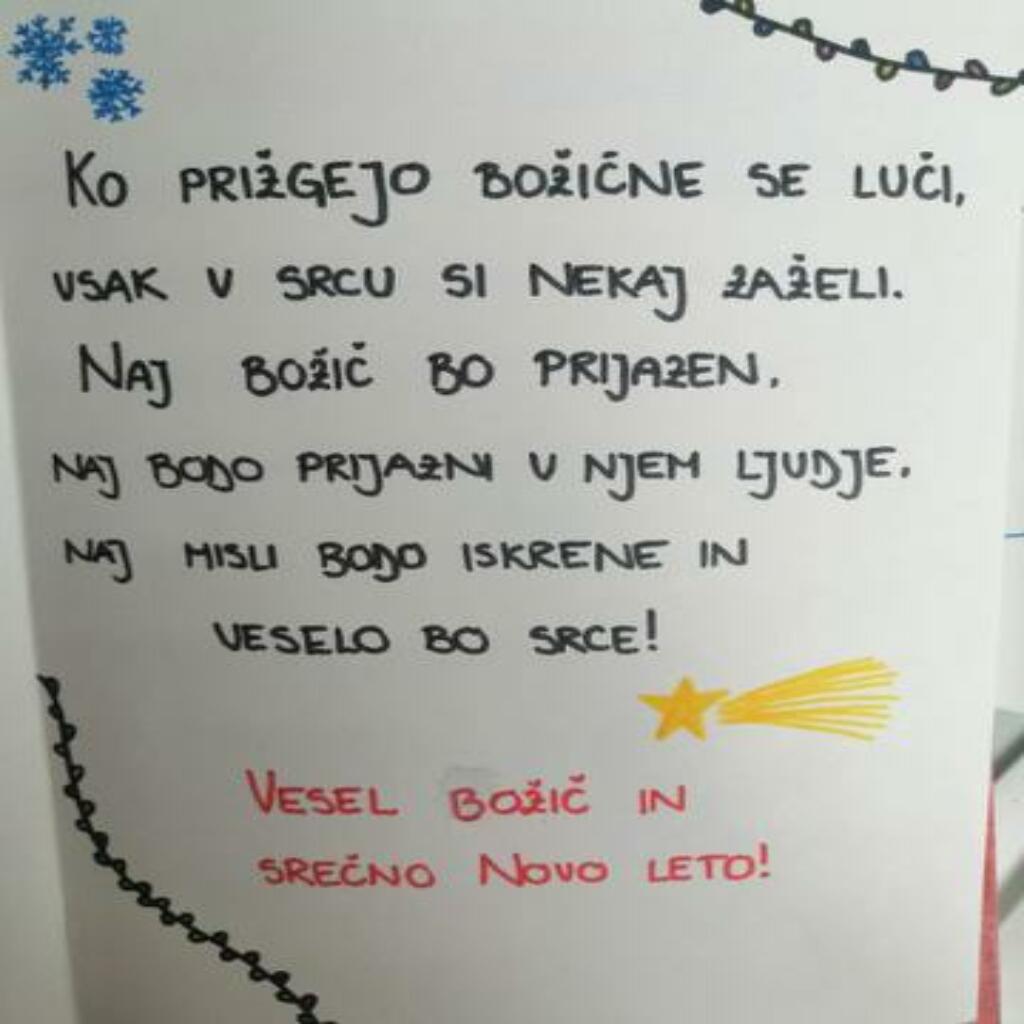 Ko PRIŽGEJO BOŽIČNE SE LUČI,
VSAK V SRCU SI NEKAJ ZAŽELI.
NAJ BOŽIČ BO PRIJAZEN.
NAJ BODO PRIJAZNI V NJEM LJUDJE.
NAJ MISLI BODO ISKRENE IN
VESELO BO SRCE!
VESEL BOŽIČ IN
SREČNO NOVO LETO!